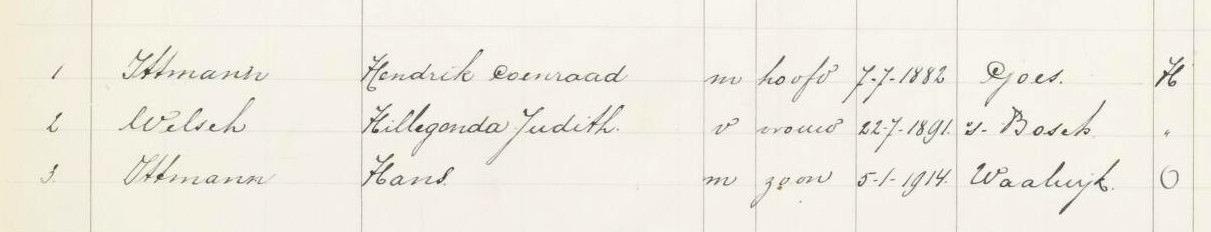 1 Ittmann Hendrik Coenraad m hoofd 7-7-1882 Goes. H
2 Welsch Hillegonda Judith. v vrouw 22-7-1891. 's-Bosch "
3. Ittmann Hans. m zoon 5-1-1914. Waalwijk. O